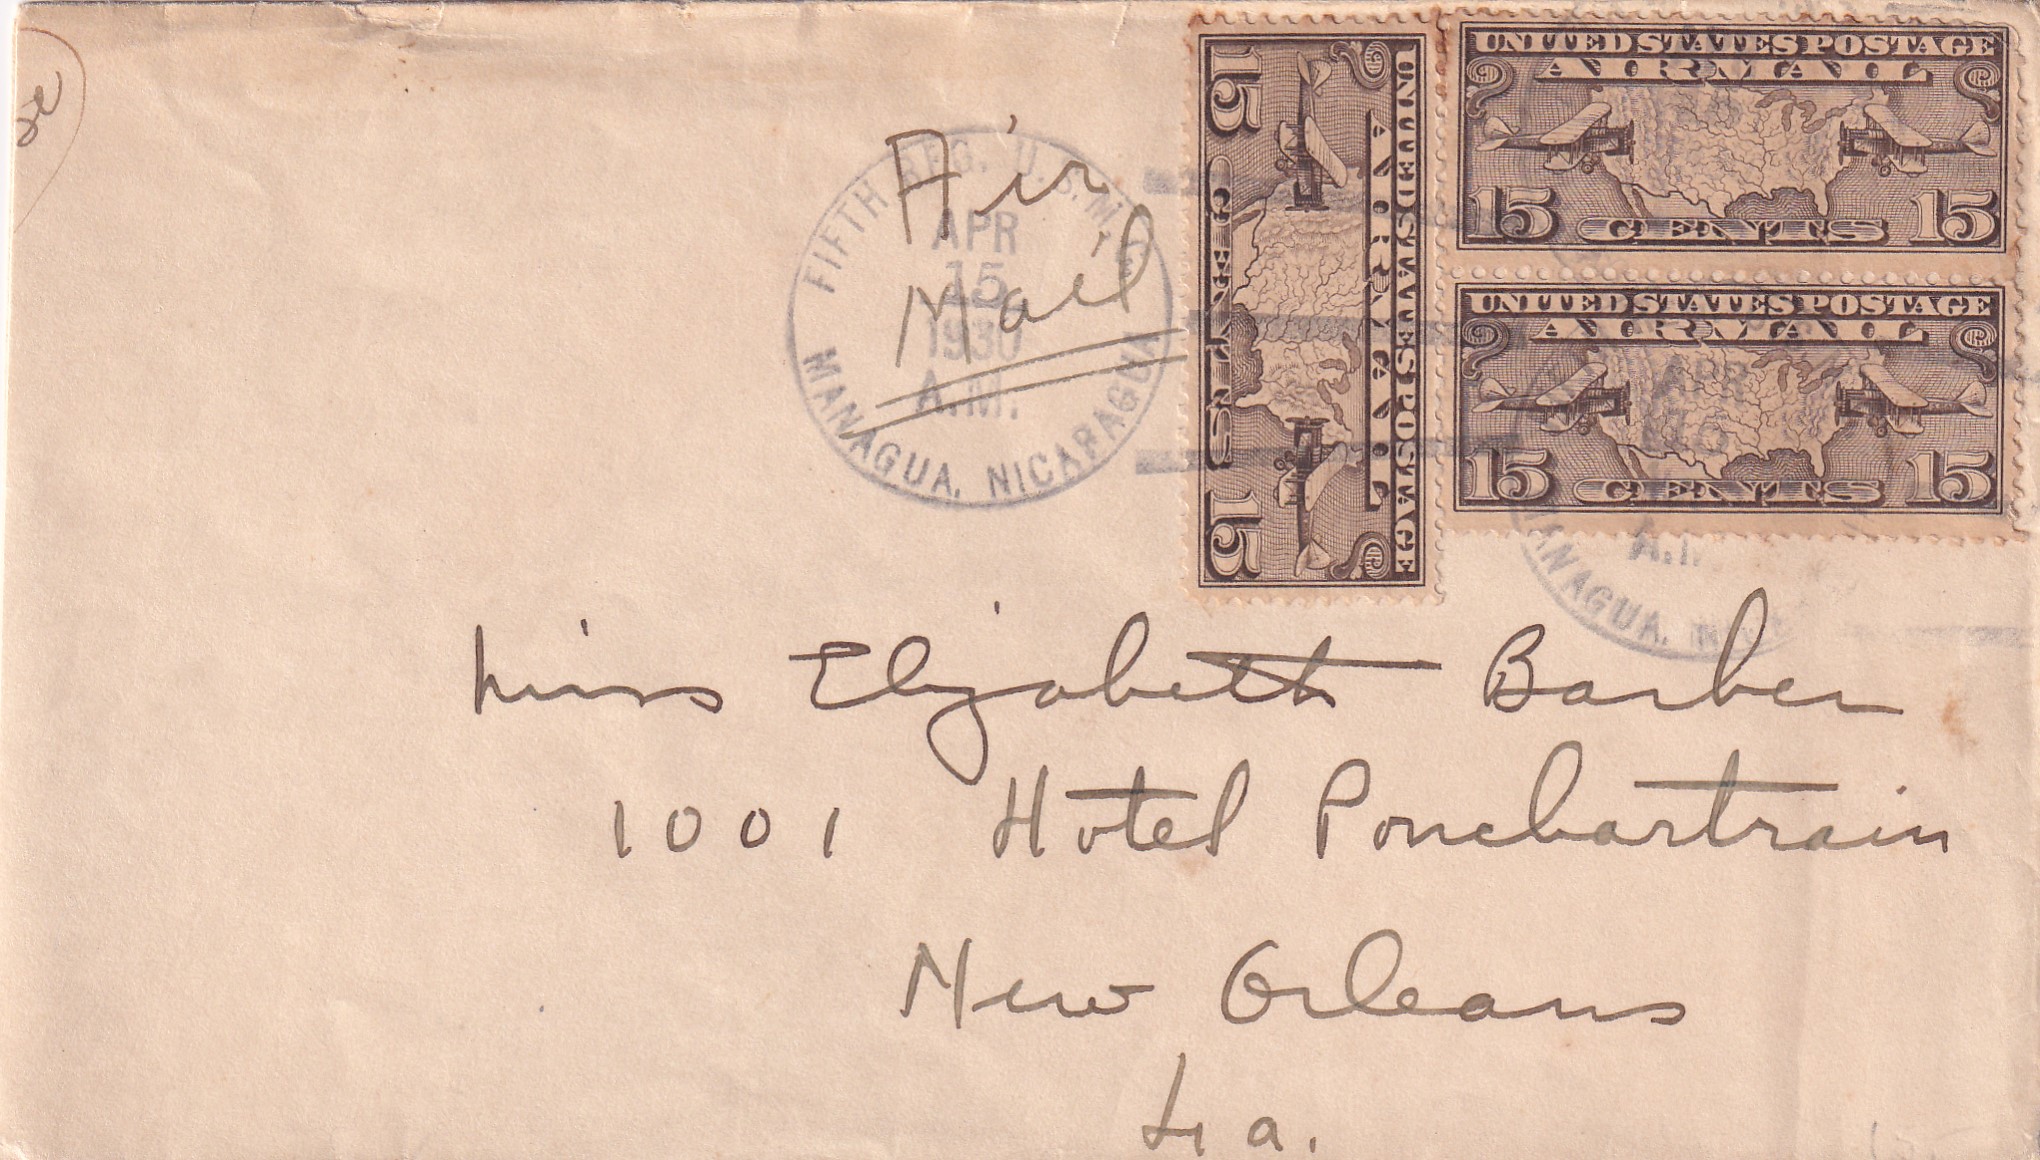 Air
Mail
FIFTH REG. U.S.M.C.
APR
15
1930
A.M.
MANAGUA, NICARAGUA
UNITED STATES POSTAGE
AIR MAIL
15 CENTS 15
UNITED STATES POSTAGE
AIR MAIL
15 CENTS 15
UNITED STATES POSTAGE
AIR MAIL
15 CENTS 15
APR
15
A.M.
MANAGUA,
Miss Elizabeth Barber
1001 Hotel Ponchartrain
New Orleans
La.